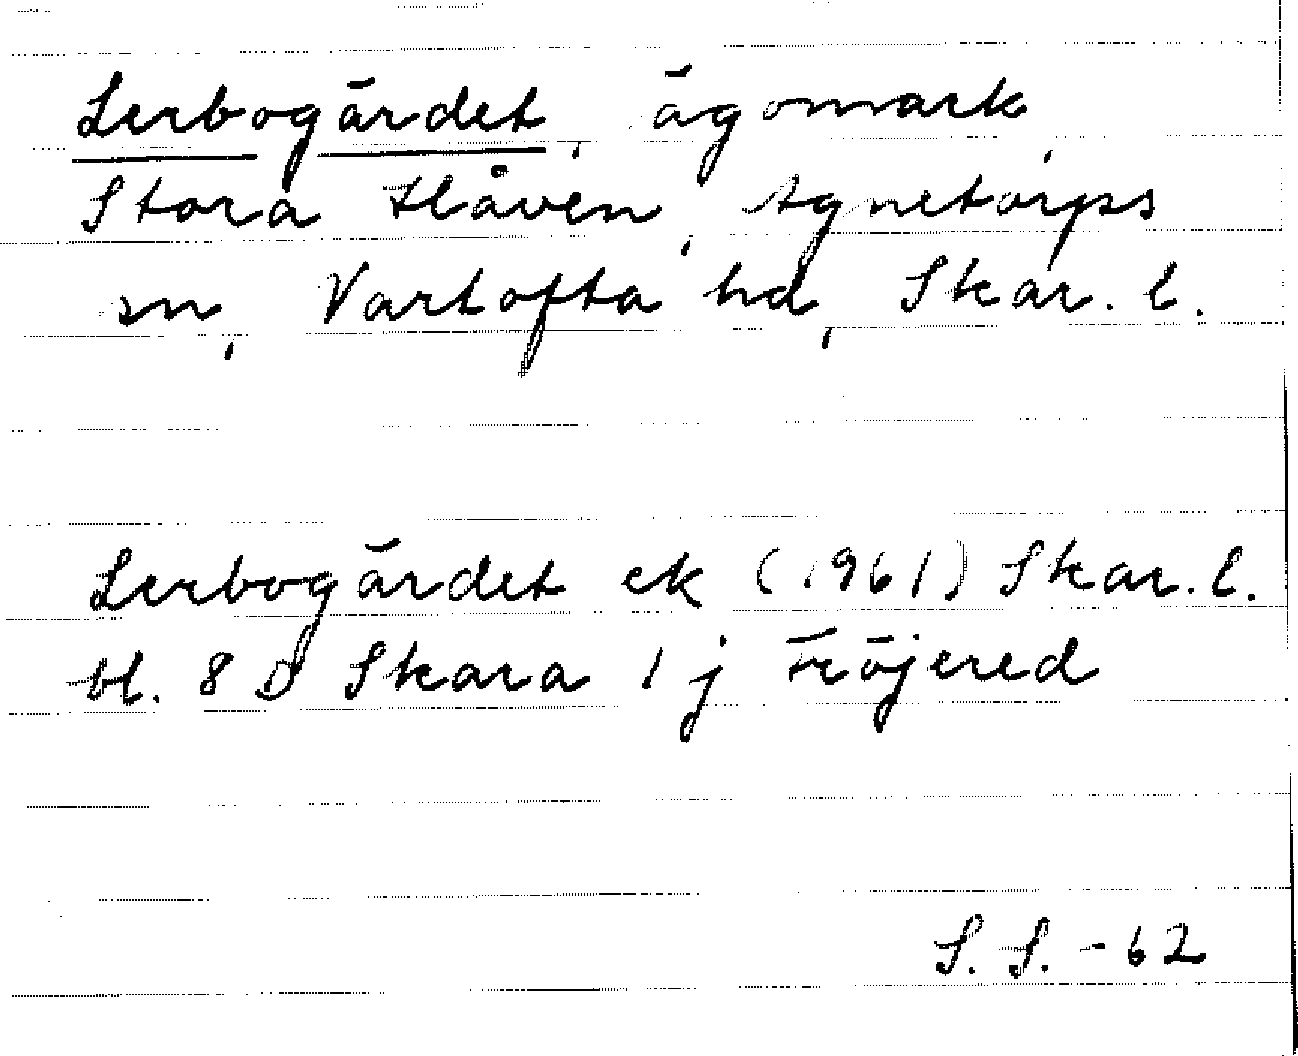 Lerbogärdet, ägomark,
Stora Håven, Agnetorps
sn, Vartofta hd, Skar. l.
Lerbogärdet ek (1961) Skar. l.
bl. 8 D Skara 1 j Fröjered
S. S. - 62